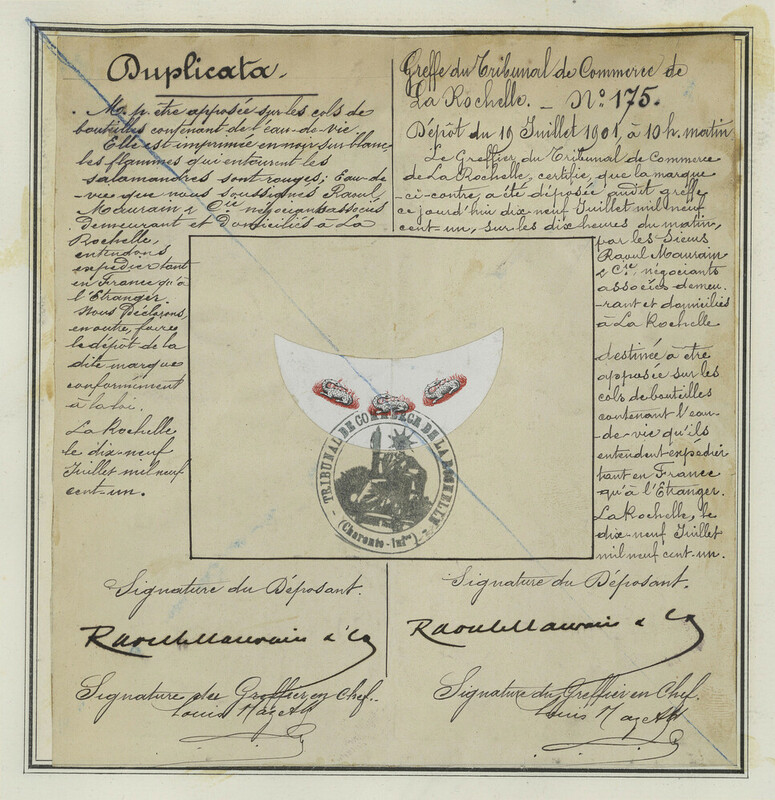 Duplicata.
. M. p. être apposée sur les cols de
bouteilles contenant de l'eau-de-vie.
Elle est imprimée en noir sur blanc,
les flammes qui entourent les
salamandres sont rouges; Eau-de-
vie que nous soussignés Raoul
Maurain & Cie négociants associés
Demeurant et Domiciliés à La
Rochelle,
entendons
expédier tant
en France qu'à
l'Étranger.
Nous Déclarons,
en outre, faire
le dépôt de la
dite marque
conformément
à la loi.
La Rochelle
le dix-neuf
Juillet mil neuf
cent-un.
Greffe du Tribunal de Commerce de
La Rochelle. - N° 175.
Dépôt du 19 Juillet 1901, à 10 h. matin
Le Greffier du Tribunal de Commerce
de La Rochelle, certifie, que la marque
-ci-contre, a été déposée audit greffe
ce jourd'hui dix-neuf Juillet mil neuf
cent-un, sur les dix heures du matin,
par les Sieurs
Raoul Maurain
& Cie, négociants
associés demeu-
-rant et domiciliés
à La Rochelle
destinée à être
apposée sur les
cols de bouteilles
contenant l'eau-
-de-vie qu'ils
entendent expédier
tant en France
qu'à l'Étranger.
La Rochelle, le
dix-neuf Juillet
mil neuf cent-un.
TRIBUNAL DE COMMERCE DE LA ROCHELLE
(Charente-Infre)
Signature du Déposant.
Raoul Maurain & Co
Signature du Greffier en Chef.
Louis
Signature du Déposant.
Raoul Maurain & Co
Signature du Greffier en Chef.
Louis